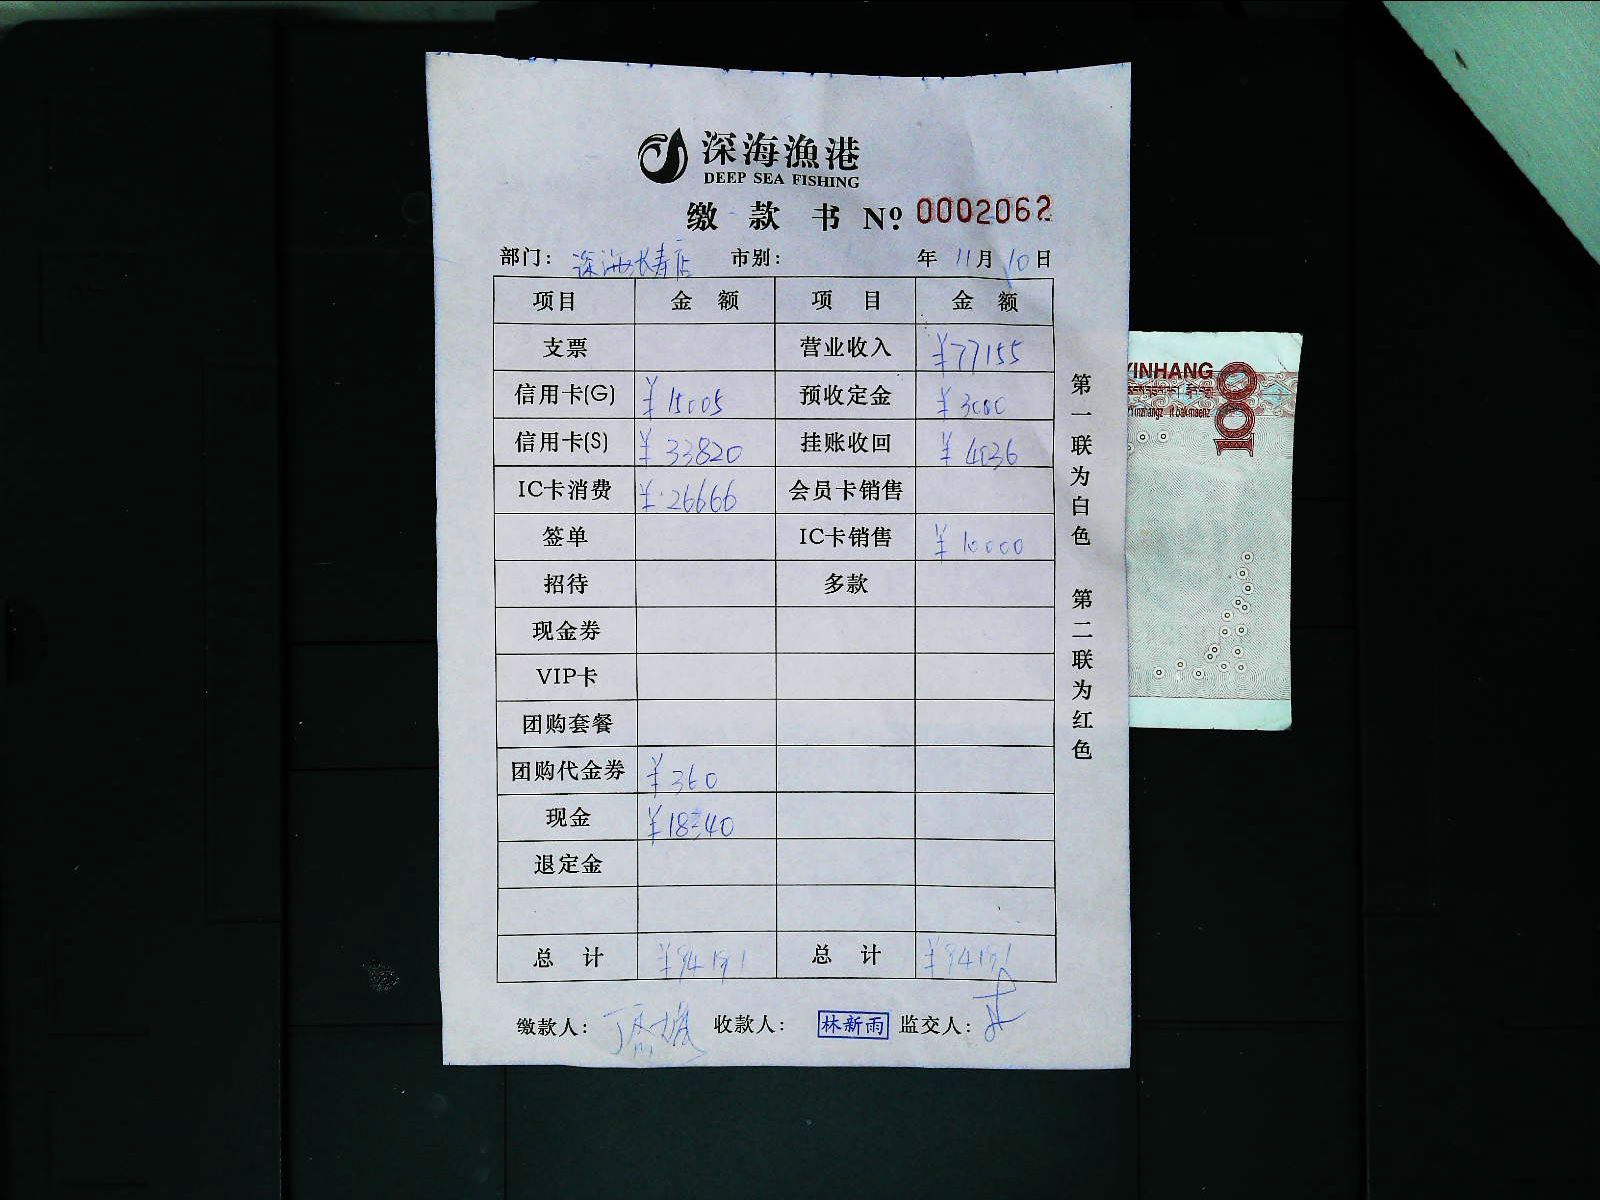 深海漁港
DEEP SEA FISHING
缴款书 Nº: 0002062
部门: 深海长寿店 市别: 年 11月 10日
项目 金额 项目 金额
支票 营业收入 ¥77155
信用卡(G) ¥15005 预收定金 ¥3000
信用卡(S) ¥33820 挂账收回 ¥4036
IC卡消费 ¥26666 会员卡销售
签单 IC卡销售 ¥10000
招待 多款
现金券
VIP卡
团购套餐
团购代金券 ¥360
现金 ¥18340
退定金
总计 ¥94191 总计 ¥94191
缴款人: 收款人: 林新雨 监交人:
第一联为白色 第二联为红色
YINHANG
100